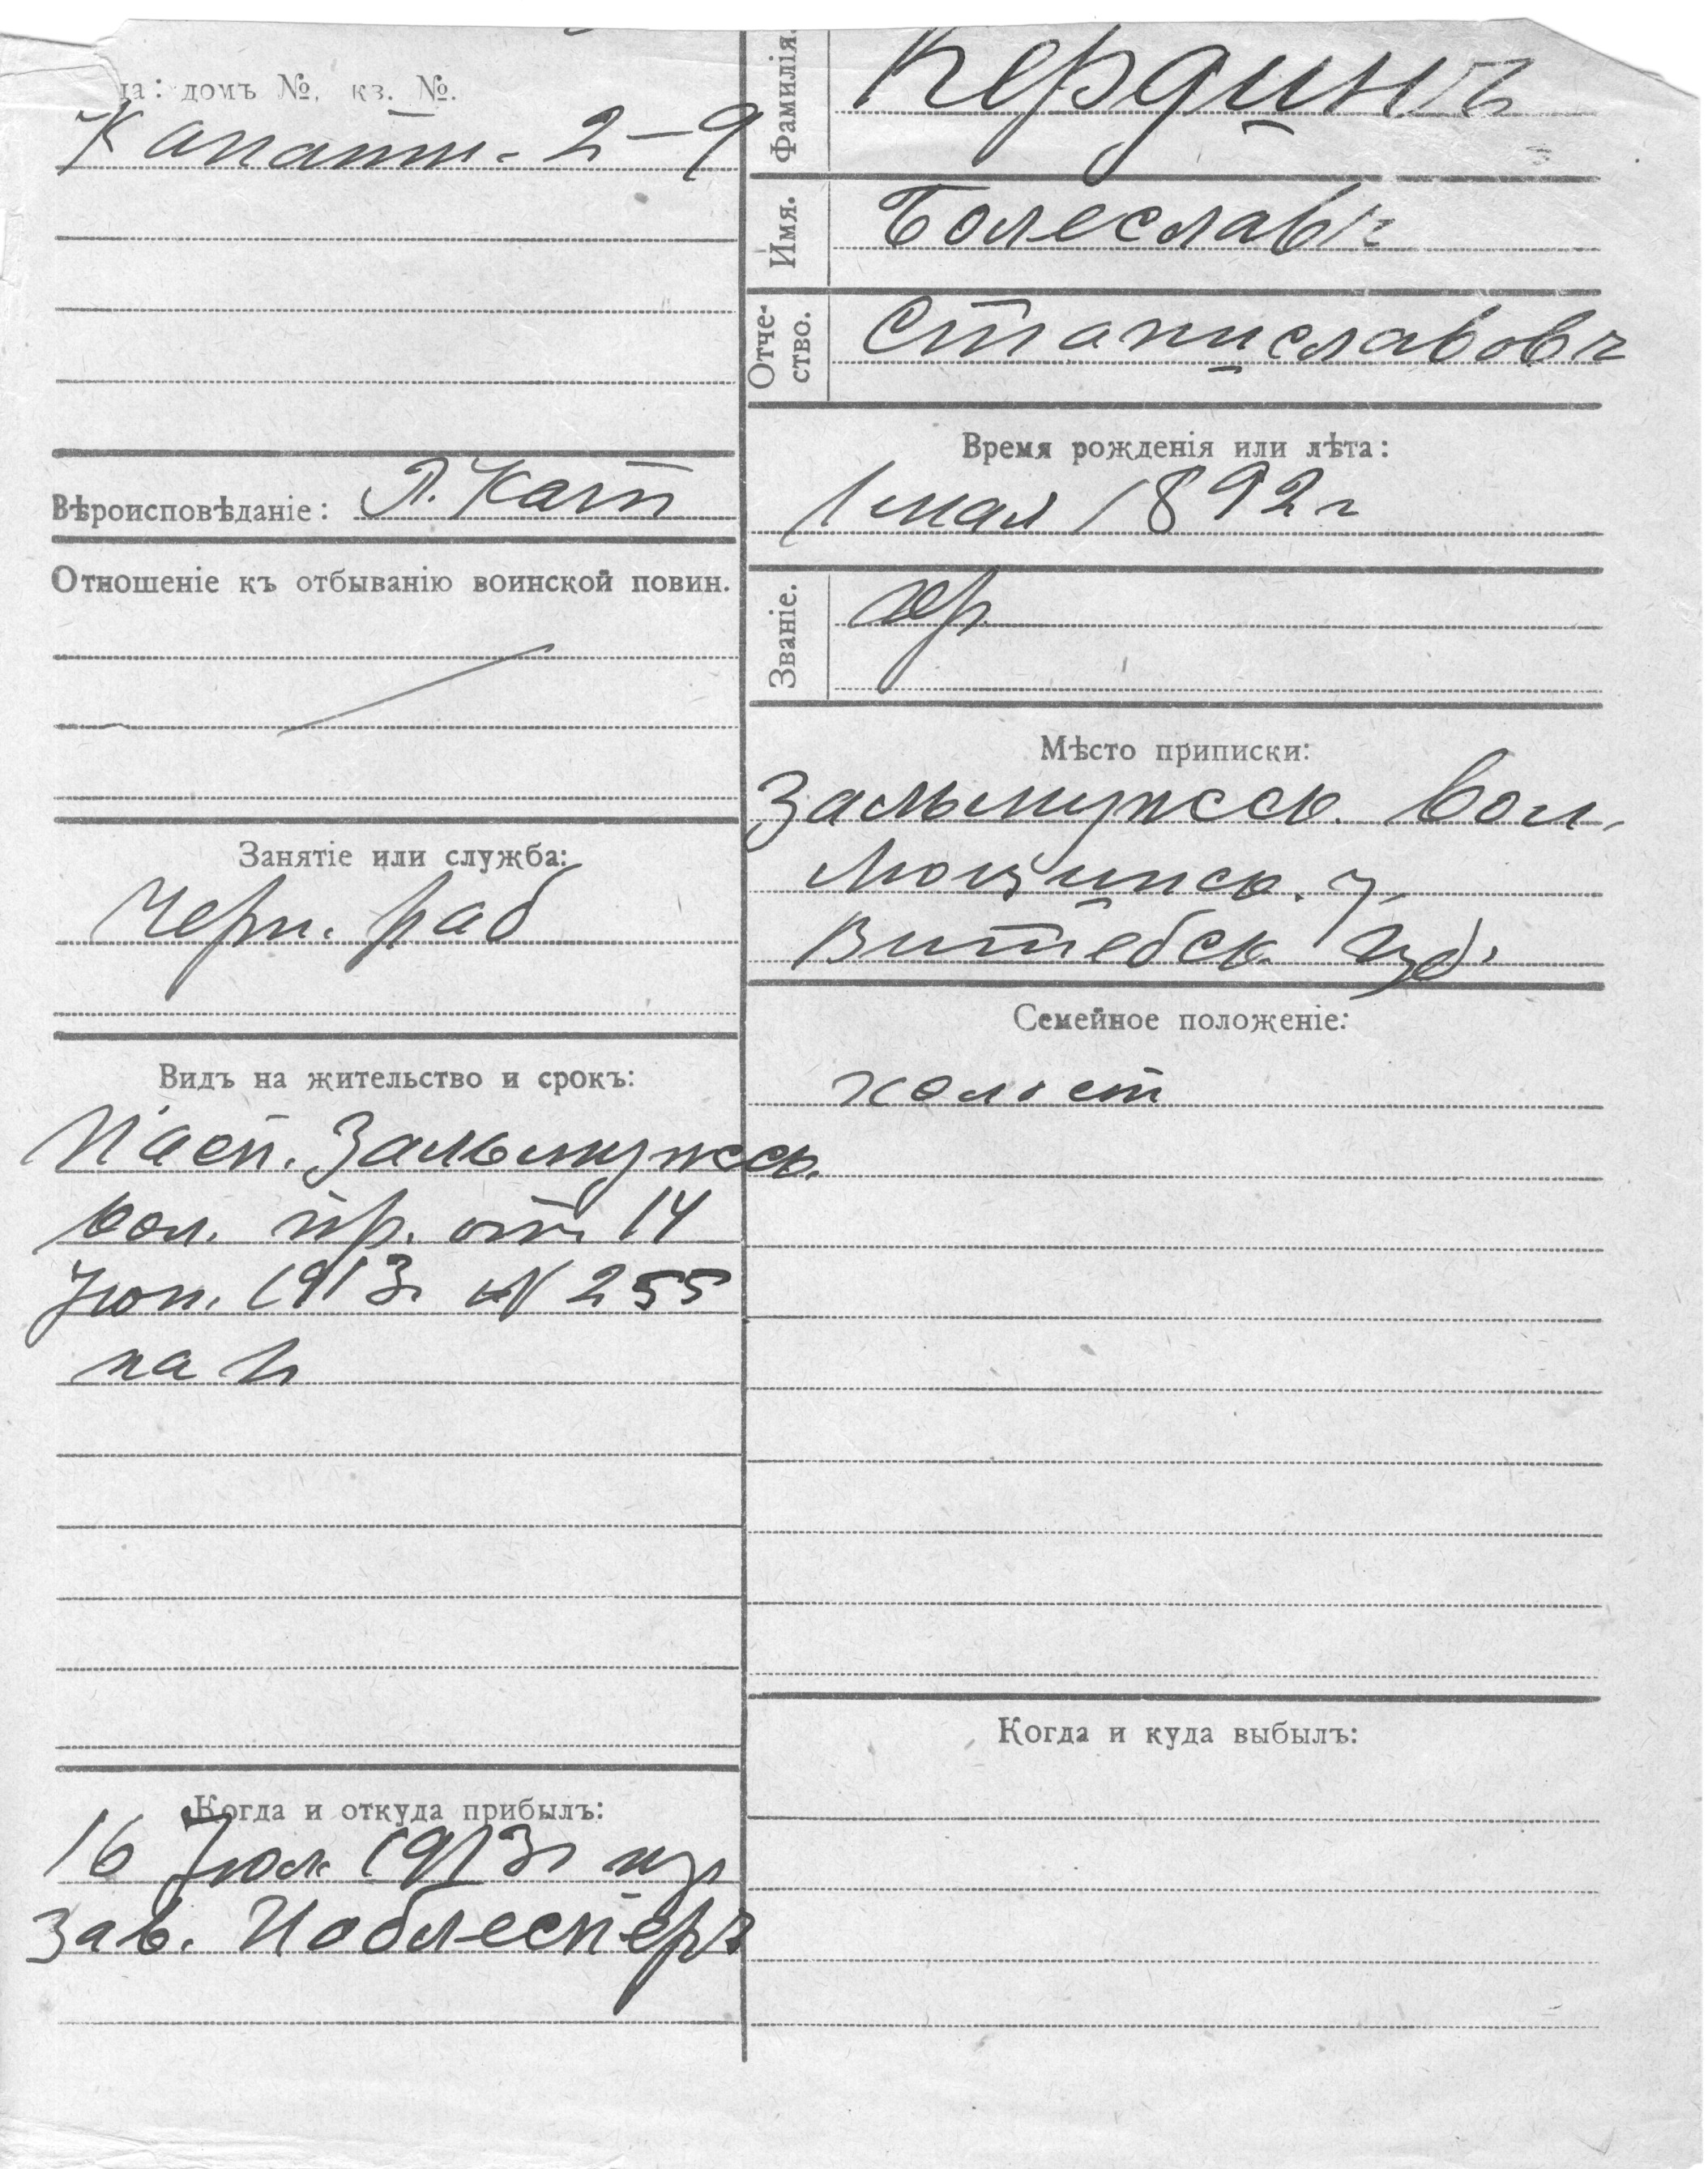 ца: домъ №, кв. №.
Канатн. 2-9
Вѣроисповѣданіе: Р. Кат
Отношеніе къ отбыванію воинской повин.
Занятіе или служба:
Черн. раб
Видъ на жительство и срокъ:
Пасп. Зальмужск.
вол. пр. от. 14
Іюн. 1913г №255
на
Когда и откуда прибылъ:
16 Іюл 1913г из
зав.
Фамилія.
Кердинъ
Имя.
Болеславъ
Отче-
ство.
Станиславовъ
Время рожденія или лѣта:
1 мая 1892г
Званіе.
кр.
Мѣсто приписки:
Зальмужск. вол.
Люцинск. у.
Витебск. губ.
Семейное положеніе:
холост
Когда и куда выбылъ: